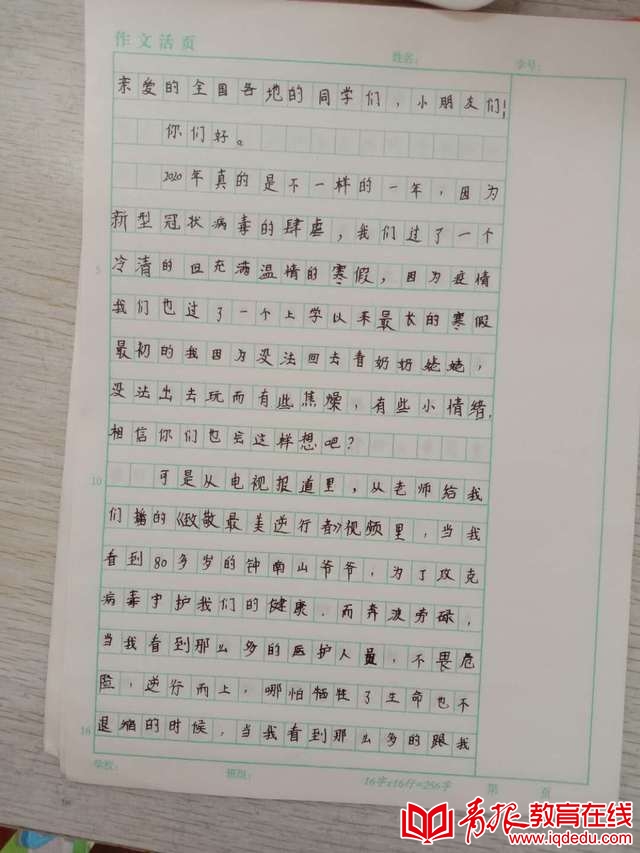 作文活页
姓名： 学号：
亲爱的全国各地的同学们，小朋友们！
你们好。
2020年真的是不一样的一年，因为
新型冠状病毒的肆虐，我们过了一个
冷清的但充满温情的寒假，因为疫情
我们也过了一个上学以来最长的寒假
最初的我因为没法回去看奶奶姥姥，
没法出去玩而有些焦燥，有些小情绪，
相信你们也会这样想吧？
可是从电视报道里，从老师给我
们播的《致敬最美逆行者》视频里，当我
看到80多岁的钟南山爷爷，为了攻克
病毒守护我们的健康．而奔波劳碌，
当我看到那么多的医护人员，不畏危
险，逆行而上，哪怕牺牲了生命也不
退缩的时候，当我看到那么多的跟我
5
10
16
学校： 班级： 16字×16行=256字 第 页
青报教育在线
www.iqdedu.com